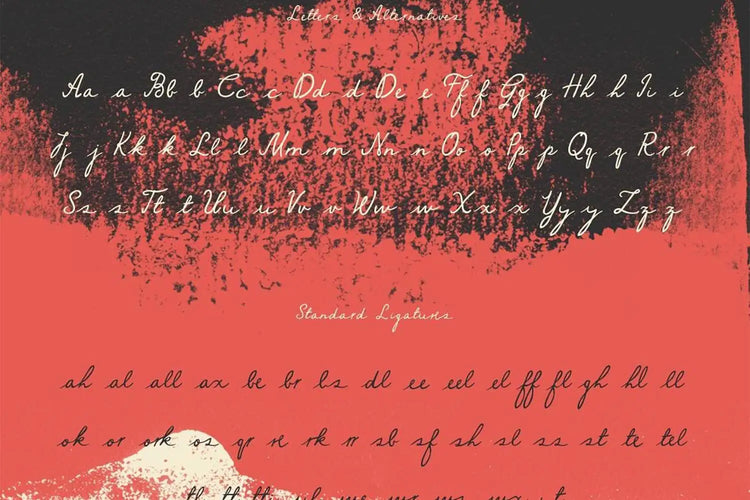 Letters & Alternatives
Aa a Bb b Cc c Dd d De e Ff f Gg g Hh h Ii i
Jj j Kk k Ll l Mm m Nn n Oo o Pp p Qq q Rr r
Ss s Tt t Uu u Vv v Ww w Xx x Yy y Zz z
Standard Ligatures
ah al all ax be br bs dl ee eel el ff fl gh hl ll
ok or ork os qr re rk rr sb sf sh sl ss st te tel